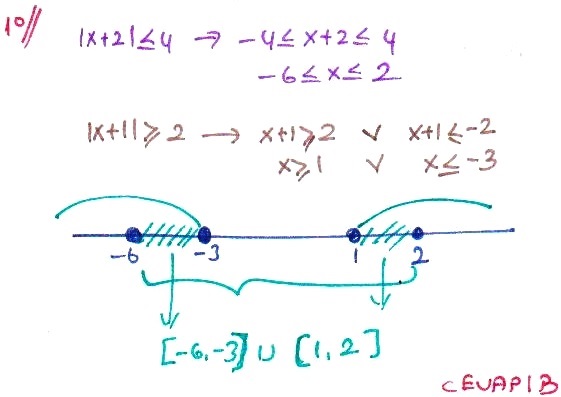 10//
|x+2| ≤ 4 → -4 ≤ x+2 ≤ 4
-6 ≤ x ≤ 2
|x+1| ≥ 2 → x+1 ≥ 2 ∨ x+1 ≤ -2
x ≥ 1 ∨ x ≤ -3
-6 -3 1 2
[-6,-3] ∪ [1,2]
CEVAP B